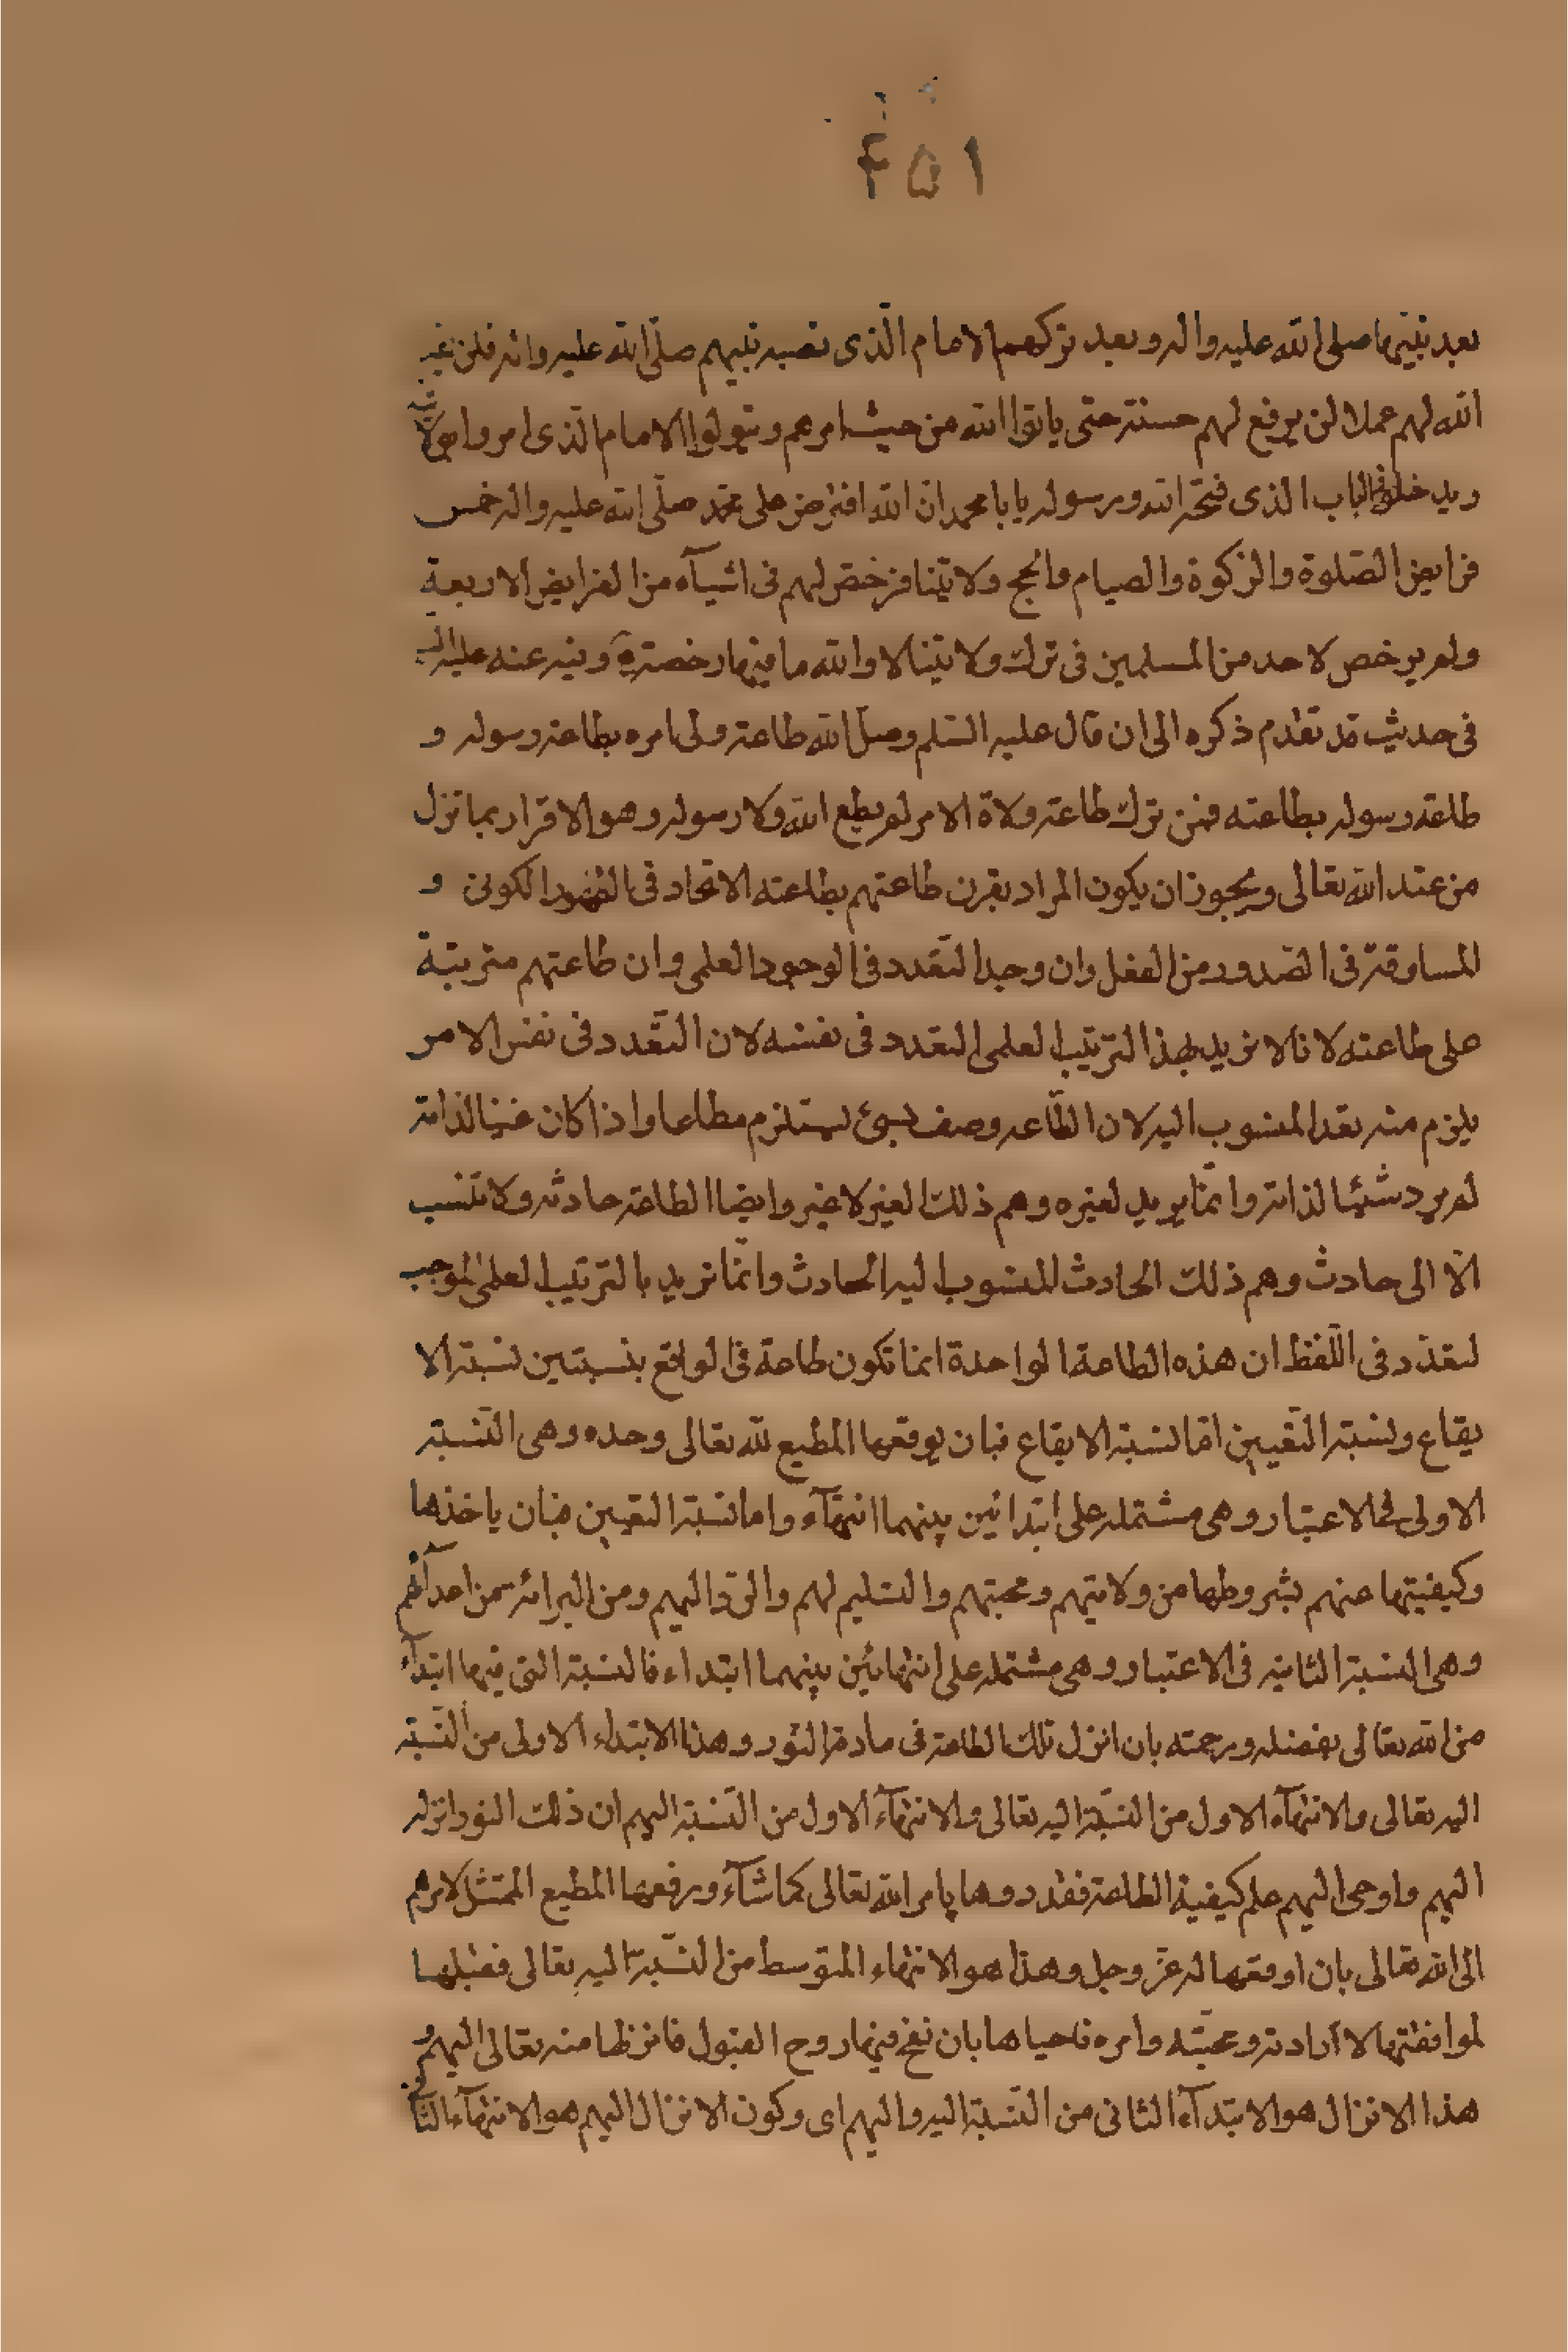 ۴۵۱
بعد نبيّها صلى الله عليه واله وبعد تركهم الامام الّذى نصبه نبيهم صلّى الله عليه واله فلن يقبل
الله لهم عملا ولن يرفع لهم حسنة حتى ياتوا الله من حيث امرهم ويتولوا الامام الذى امروا بولايته
ويدخلوا فى الباب الذى فتحه الله ورسوله يابا محمد انّ الله افترض على محمّد صلّى الله عليه واله خمس
فرايض الصّلوة والزكوة والصيام والحج وولايتنا فرخّص لهم فى اشيآء من الفرايض الاربعة
ولم يرخص لاحد من المسلمين فى ترك ولايتنا لا والله ما فيها رخصة وفيه عنه عليه السلم
فى حديث قد تقدم ذكره الى ان قال عليه السّلم وصل الله طاعة ولى امره بطاعة رسوله و
طاعة رسوله بطاعته فمن ترك طاعة ولاة الامر لم يطع الله ولا رسوله وهو الاقرار بما نزل
من عند الله تعالى ويجوز ان يكون المراد بقرن طاعتهم بطاعته الاتحاد فى الظهور الكونى و
المساوقة فى الصّدور من الفعل وان وجد التّعدد فى الوجود العلمى وان طاعتهم مترتبة
على طاعته لانا لا نريد بهذا الترتيب العلمى التعدد فى نفسه لان التّعدد فى نفس الامر
يلزم منه تعدد المنسوب اليه لان الطّاعه وصف نسبىّ يستلزم مطاعا واذا كان غنيا لذاته
لم يرد شيئا لذاته وانّما يريد لغيره وهم ذلك الغير لا غير وايضا الطاعة حادثه ولا تنسب
الّا الى حادث وهم ذلك الحادث المنسوب اليه الحادث وانّما نريد بالترتيب العلمى الموجب
لتعدّد فى اللّفظ ان هذه الطاعة الواحدة انما تكون طاعة فى الواقع بنسبتين نسبة الا
يقاع ونسبة التّعيين امّا نسبة الايقاع فبان يوقعها المطيع لله تعالى وحده وهى النّسبة
الاولى فى الاعتبار وهى مشتمله على ابتدائين بينهما انتهآء واما نسبة التعيين فبان ياخذها
وكيفيتها عنهم بشروطها من ولايتهم ومحبتهم والتسليم لهم والردّ اليهم ومن البرائة من اعدآئهم
وهى النسبة الثانيه فى الاعتبار وهى مشتمله على انتهائين بينهما ابتداء فالنسبة التى فيها ابتدآء
من الله تعالى بفضله ورحمته بان انزل تلك الطاعة فى مادة النّور وهذا الابتداء الاولى من النّسبة
اليه تعالى والانتهآء الاول من النسبة اليه تعالى والانتهآء الاول من النّسبة اليهم ان ذلك النور انزله
اليهم واوحى اليهم علم كيفية الطاعة فقدروها بامر الله تعالى كما شآء ورفعها المطيع الممتثل لامرهم
الى الله تعالى بان اوقعها له عزّ وجل وهذا هو الانتهاء المتوسط من النسّبة اليهِ تعالى فقبلها
لموافقتها لارادته ومحبّته وامره فاحياها بان نفخ فيها روح القبول فانزلها منه تعالى اليهم و
هذا الانزال هو الابتدآء الثانى من النّسبة اليه واليهم اى وكون الانزال اليهم هو الانتهآء الثا